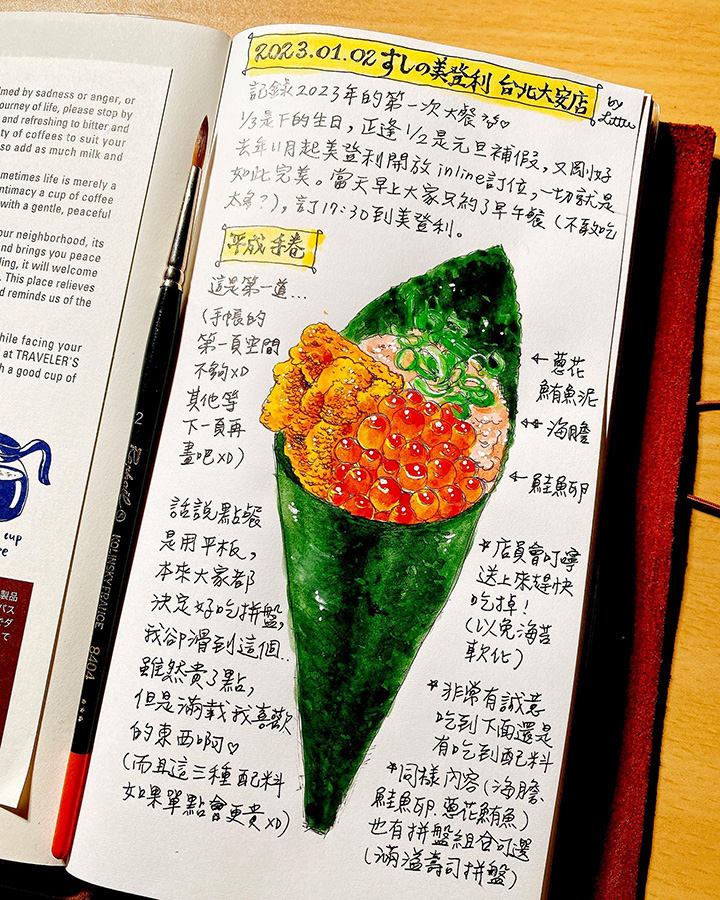 med by sadness or anger, or
ourney of life, please stop by
and refreshing to bitter and
ty of coffees to suit your
so add as much milk and
metimes life is merely a
ntimacy a cup of coffee
with a gentle, peaceful
our neighborhood, its
nd brings you peace
ling, it will welcome
. This place relieves
d reminds us of the
while facing your
at TRAVELER'S
h a good cup of
cup
製品
パス
でダ
て
2
KOLINSKY FRANCE 8404
2023.01.02 すしの美登利 台北大安店
by Littlu
記錄2023年的第一次大餐
1/3是下的生日，正逢1/2是元旦補假，又剛好
去年11月起美登利開放inline訂位，一切就是
如此完美。當天早上大家只約了早午餐（不敢吃
太多？），訂17:30到美登利。
平成手卷
這是第一道…
（手帳的
第一頁空間
不夠XD
其他等
下一頁再
畫吧XD）
←蔥花
鮪魚泥
←海膽
←鮭魚卵
話說點餐
是用平板，
本來大家都
決定好吃拼盤，
我卻滑到這個..
雖然貴了點，
但是滿載我喜歡
的東西啊♡
（而且這三種配料
如果單點會更貴XD）
*店員會叮嚀
送上來趕快
吃掉！
（以免海苔
軟化）
*非常有誠意
吃到下面還是
有吃到配料
*同樣內容（海膽、
鮭魚卵.蔥花鮪魚）
也有拼盤組合可選
（滿溢壽司拼盤）